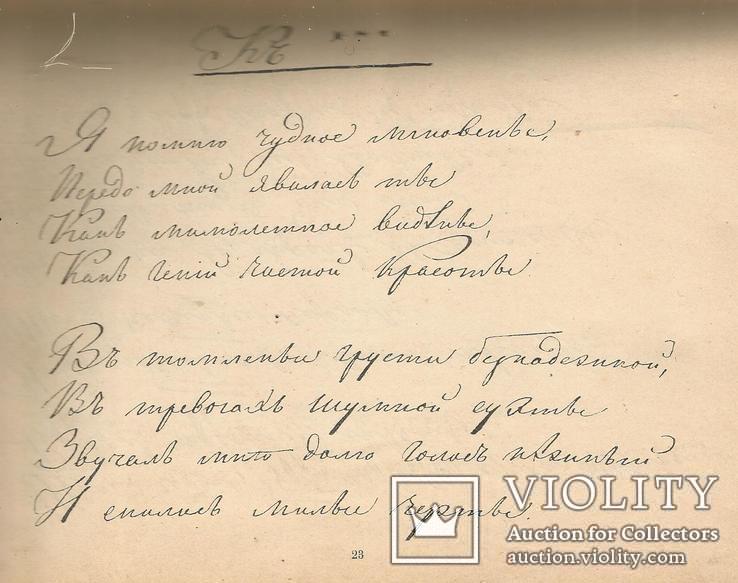 Къ ***
Я помню чудное мгновенье,
Передо мной явилась ты
Какъ мимолетное видѣнье,
Какъ геній чистой красоты.
Въ томленьи грусти безнадежной,
Въ тревогахъ шумной суеты
Звучалъ мнѣ долго голосъ нѣжный
И снились милыя черты.
23
VIOLITY
Auction for Collectors
auction.violity.com